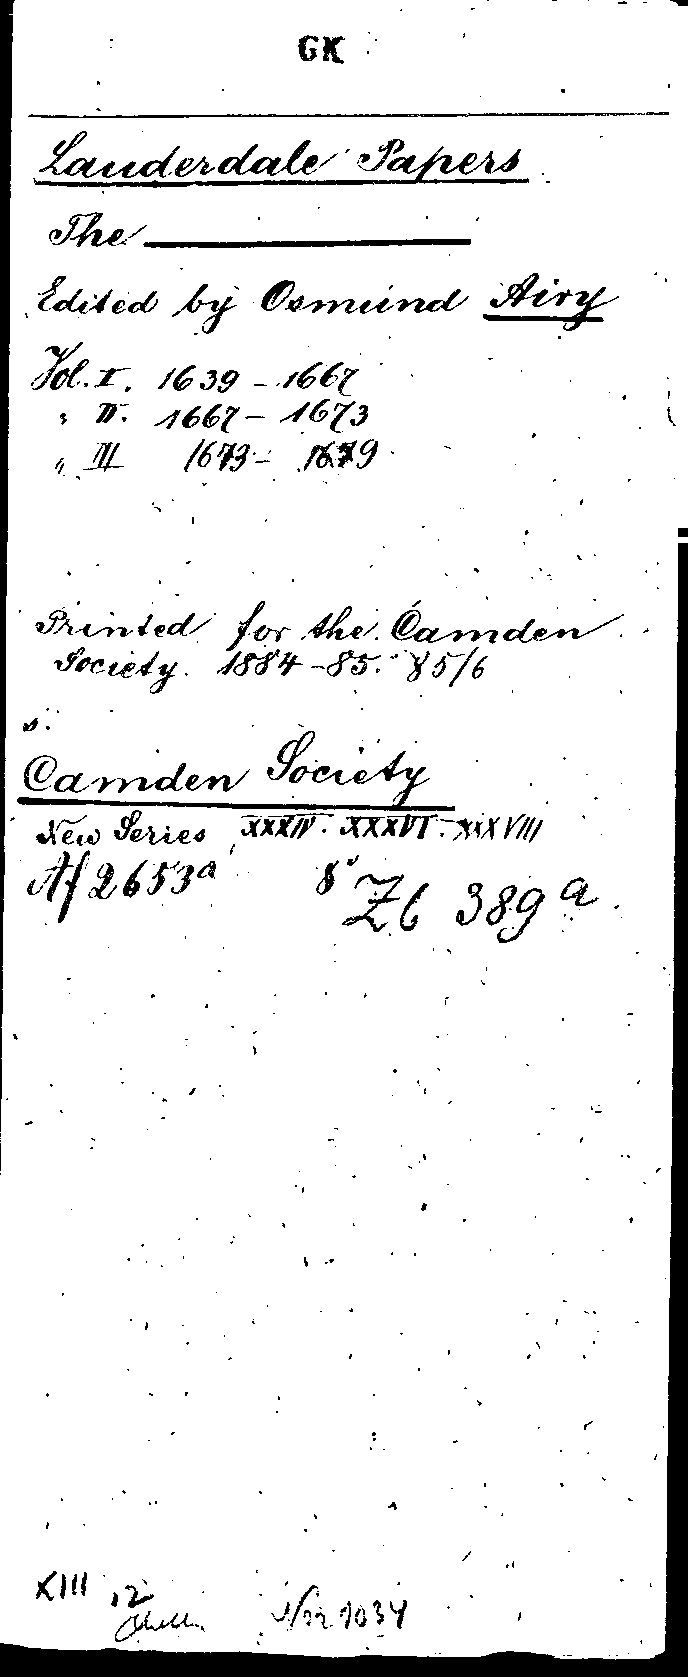 GK
Lauderdale Papers
The ————
Edited by Osmund Airy
Vol. I. 1639 - 1667
" II. 1667 - 1673
" III 1673 - 1679
Printed for the Camden
Society. 1884-85. 85/6
s.
Camden Society
New Series XXXIV. XXXVI. XXXVIII
Af 2653a 8° Zb 389a
XIII 12
1034